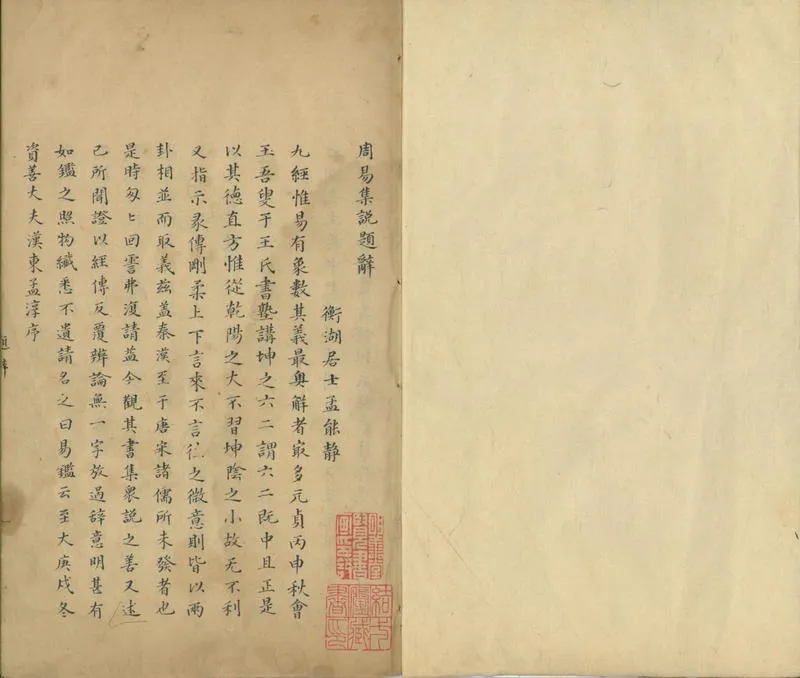 周易集說題辭
衡湖居士孟能靜
九經惟易有象數其義最奧解者㝡多元貞丙申秋會
玉吾叟于王氏書塾講坤之六二謂六二既中且正是
以其德直方惟從乾陽之大不習坤陰之小故无不利
又指示彖傳剛柔上下言來不言往之微意則皆以兩
卦相並而取義茲盖秦漢至于唐宋諸儒所未發者也
是時匆匕回霅弗復請益今觀其書集衆說之善又述
己所聞證以經傳反覆辨論無一字放過辞意明甚有
如鑑之照物纖悉不遺請名之曰易鑑云至大庚戌冬
資善大夫漢東孟淳序
題辭